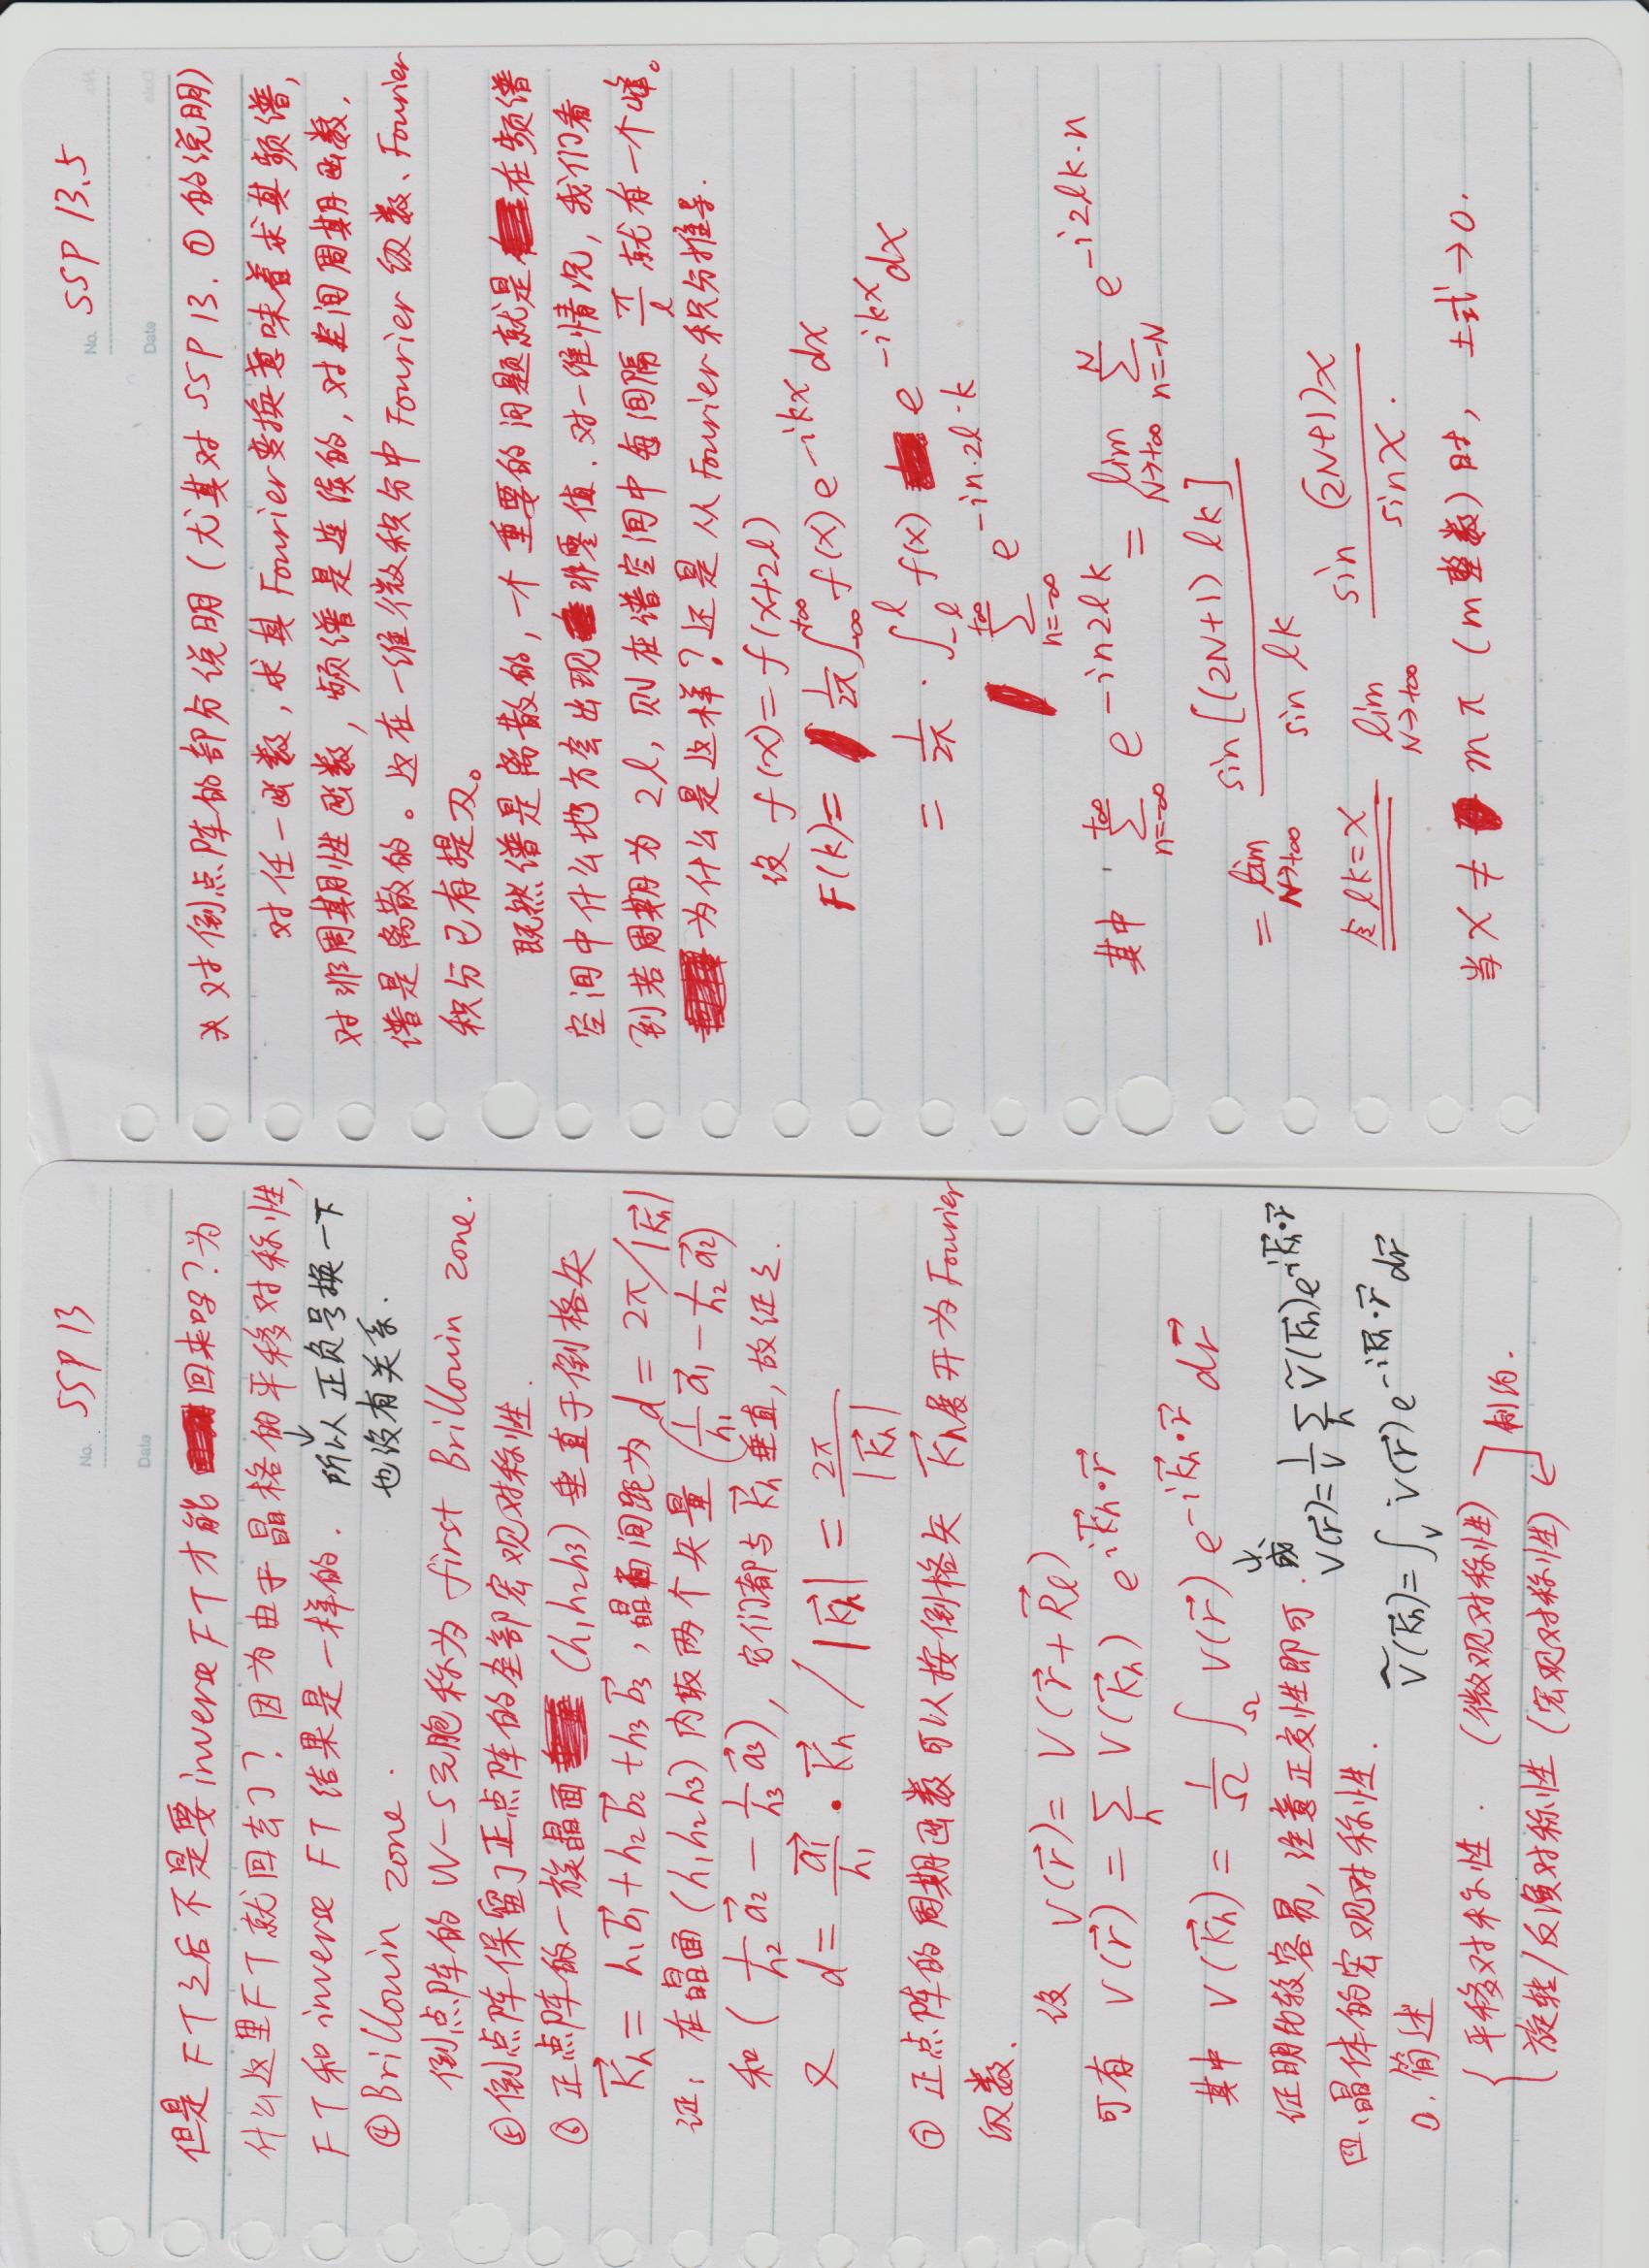 No. SSP 13
Date
但是 FT之后不是要 inverse FT 才能回来吗？为
什么这里FT就回去了？因为由于晶格的平移对称性,
FT和 inverse FT 结果是一样的.
↓
所以正负号换一下
也没有关系.
④ Brillouin zone.
倒点阵的 W-S元胞称为 first Brillouin zone.
⑤ 倒点阵保留了正点阵的全部宏观对称性.
⑥ 正点阵的一族晶面 (h₁h₂h₃) 垂直于倒格矢
$\vec{K}_h = h_1\vec{b}_1 + h_2\vec{b}_2 + h_3\vec{b}_3$, 晶面间距为 $d = 2\pi/|\vec{K}_h|$
证: 在晶面 (h₁h₂h₃) 内取两个矢量 $(\frac{1}{h_1}\vec{a}_1 - \frac{1}{h_2}\vec{a}_2)$
和 $(\frac{1}{h_2}\vec{a}_2 - \frac{1}{h_3}\vec{a}_3)$, 它们都与 $\vec{K}_h$ 垂直, 故证之.
又 $d = \frac{\vec{a}_1}{h_1} \cdot \vec{K}_h / |\vec{K}_h| = \frac{2\pi}{|\vec{K}_h|}$
⑦ 正点阵的周期函数可以按倒格矢 $\vec{K}_h$ 展开为 Fourier
级数.
设 $V(\vec{r}) = V(\vec{r} + \vec{R}_l)$
可有 $V(\vec{r}) = \sum_h V(\vec{K}_h) e^{i\vec{K}_h \cdot \vec{r}}$
其中 $V(\vec{K}_h) = \frac{1}{\Omega} \int_\Omega V(\vec{r}) e^{-i\vec{K}_h \cdot \vec{r}} d\vec{r}$
证明比较容易, 注意正交性即可.
↓
或
$V(\vec{r}) = \frac{1}{V} \sum_h \tilde{V}(\vec{K}_h) e^{i\vec{K}_h \cdot \vec{r}}$
$\tilde{V}(\vec{K}_h) = \int_V V(\vec{r}) e^{-i\vec{K}_h \cdot \vec{r}} d\vec{r}$
四. 晶体的宏观对称性.
0. 简述
平移对称性. (微观对称性)
旋转/反演对称性 (宏观对称性)
制约.
No. SSP 13.5
Date
* 对倒点阵的部分说明 (尤其对 SSP 13. ⑦ 的说明)
对任一函数, 求其 Fourier 变换意味着求其频谱,
对非周期性函数, 频谱是连续的, 对空间周期函数,
谱是离散的。这在一维微积分中 Fourier 级数、Fourier
积分已有提及。
既然谱是离散的, 一个重要的问题就是在频谱
空间中什么地方会出现非零值. 对一维情况, 我们看
到若周期为 2l, 则在谱空间中每间隔 $\frac{\pi}{l}$ 就有一个峰。
为什么是这样? 还是从 Fourier 积分推导.
设 $f(x) = f(x+2l)$
$F(k) = \frac{1}{2\pi} \int_{-\infty}^{+\infty} f(x) e^{-ikx} dx$
$= \frac{1}{2\pi} \cdot \int_{-l}^{l} f(x) e^{-ikx} dx$
$\sum_{n=-\infty}^{+\infty} e^{-in \cdot 2l \cdot k}$
其中 $\sum_{n=-\infty}^{+\infty} e^{-in2lk} = \lim_{N \to +\infty} \sum_{n=-N}^{N} e^{-i2lk \cdot n}$
$= \lim_{N \to +\infty} \frac{\sin[(2N+1)lk]}{\sin lk}$
令 lk=x $\lim_{N \to +\infty} \frac{\sin(2N+1)x}{\sin x}$.
当 x ≠ mπ (m 整数) 时, 上式 → 0.